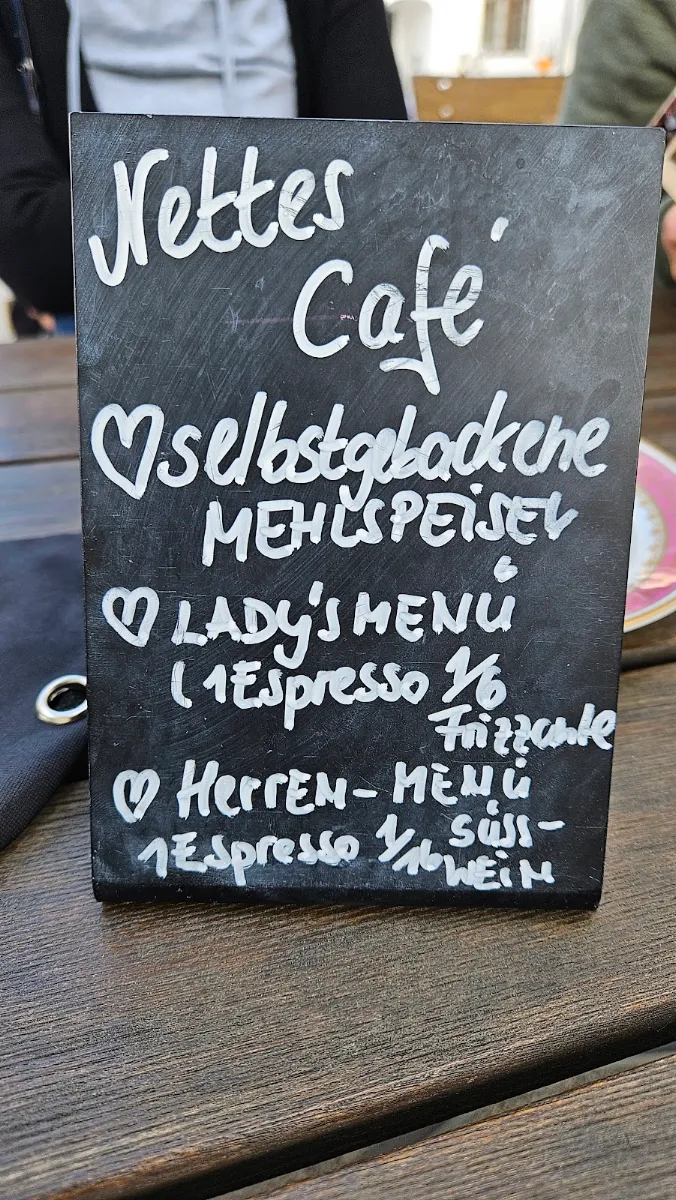 Nettes
Café
♡ selbstgebackene
MEHLSPEISEN
♡ LADY'S MENÜ
(1 Espresso 1/6
Frizzante
♡ HERREN-MENÜ
1 Espresso 1/16 SÜSS-
WEIN